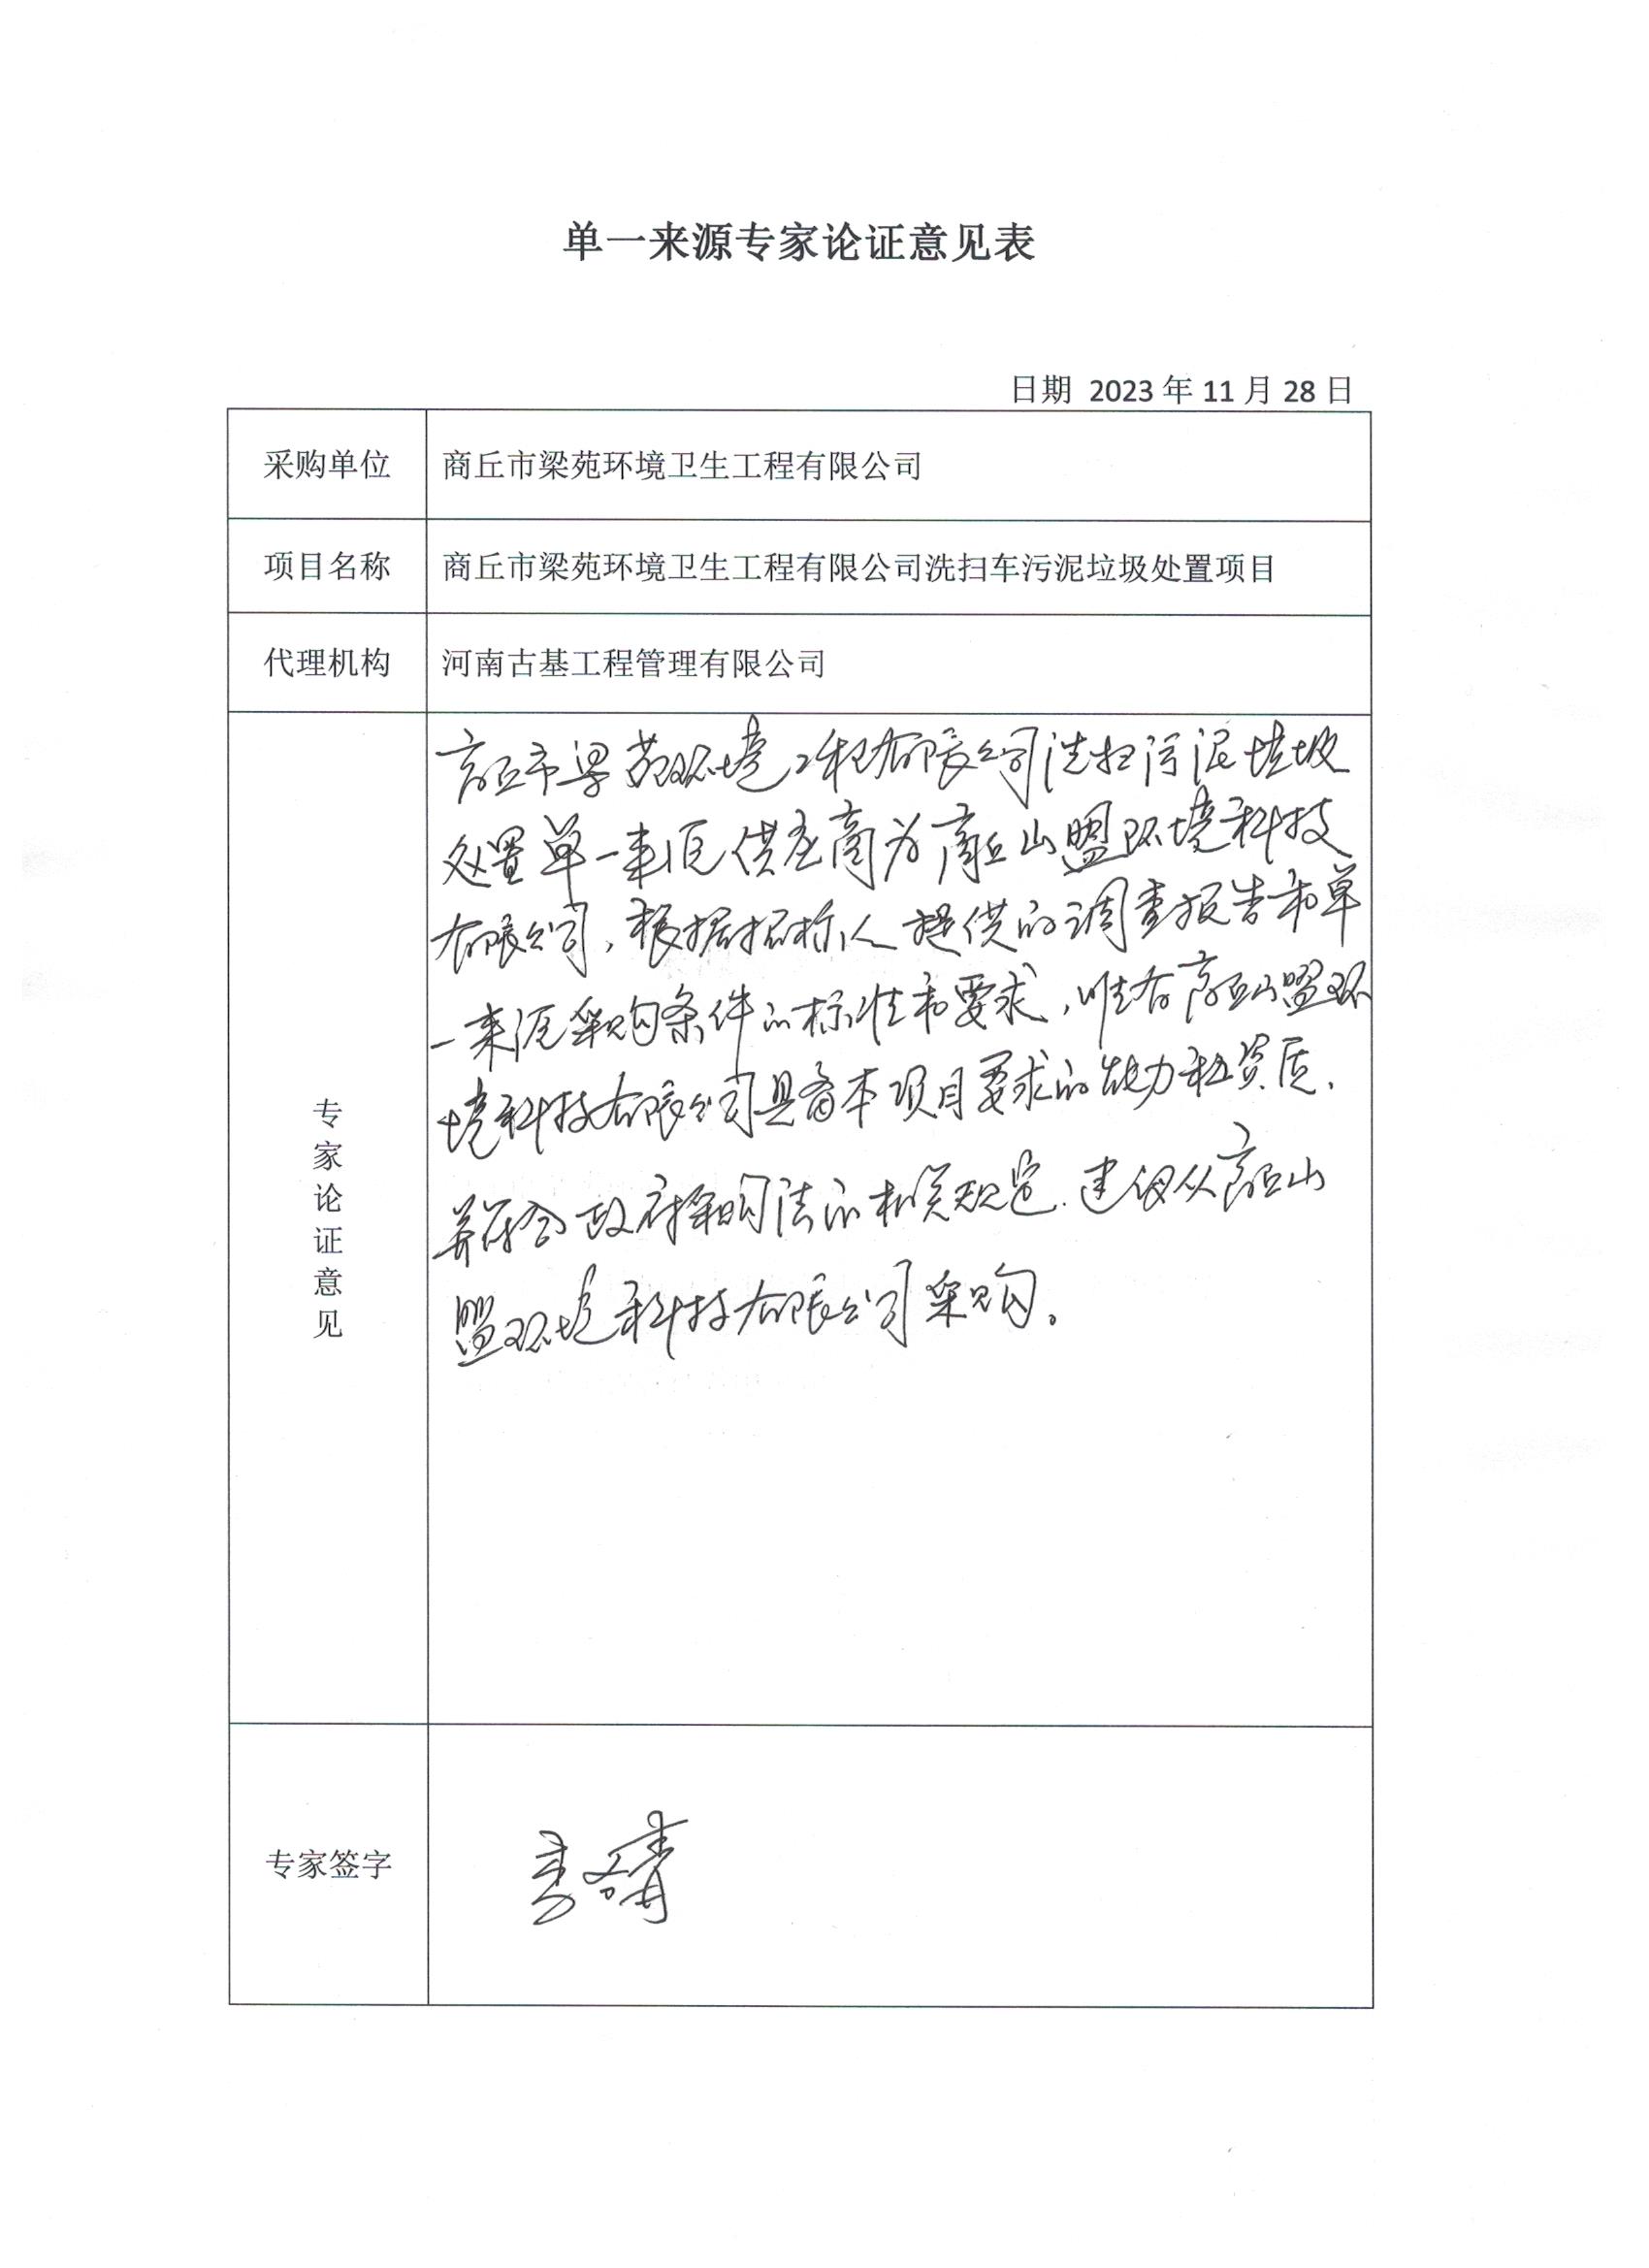 单一来源专家论证意见表
日期 2023 年 11 月 28 日
采购单位 商丘市梁苑环境卫生工程有限公司
项目名称 商丘市梁苑环境卫生工程有限公司洗扫车污泥垃圾处置项目
代理机构 河南古基工程管理有限公司
专家论证意见
商丘市梁苑环境工程有限公司洗扫污泥垃圾
处置单一来源供应商为商丘山盟环境科技
有限公司，根据招标人提供的调查报告和单
一来源采购条件的标准和要求，唯有商丘山盟环
境科技有限公司具备本项目要求的能力和资质，
并符合政府采购法的相关规定.建议从商丘山
盟环境科技有限公司采购。
专家签字